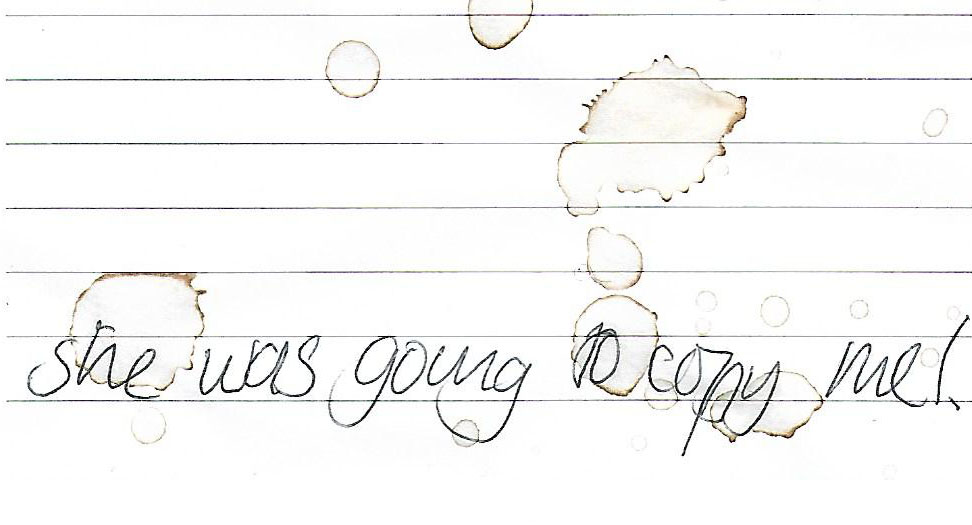 she was going to copy me!